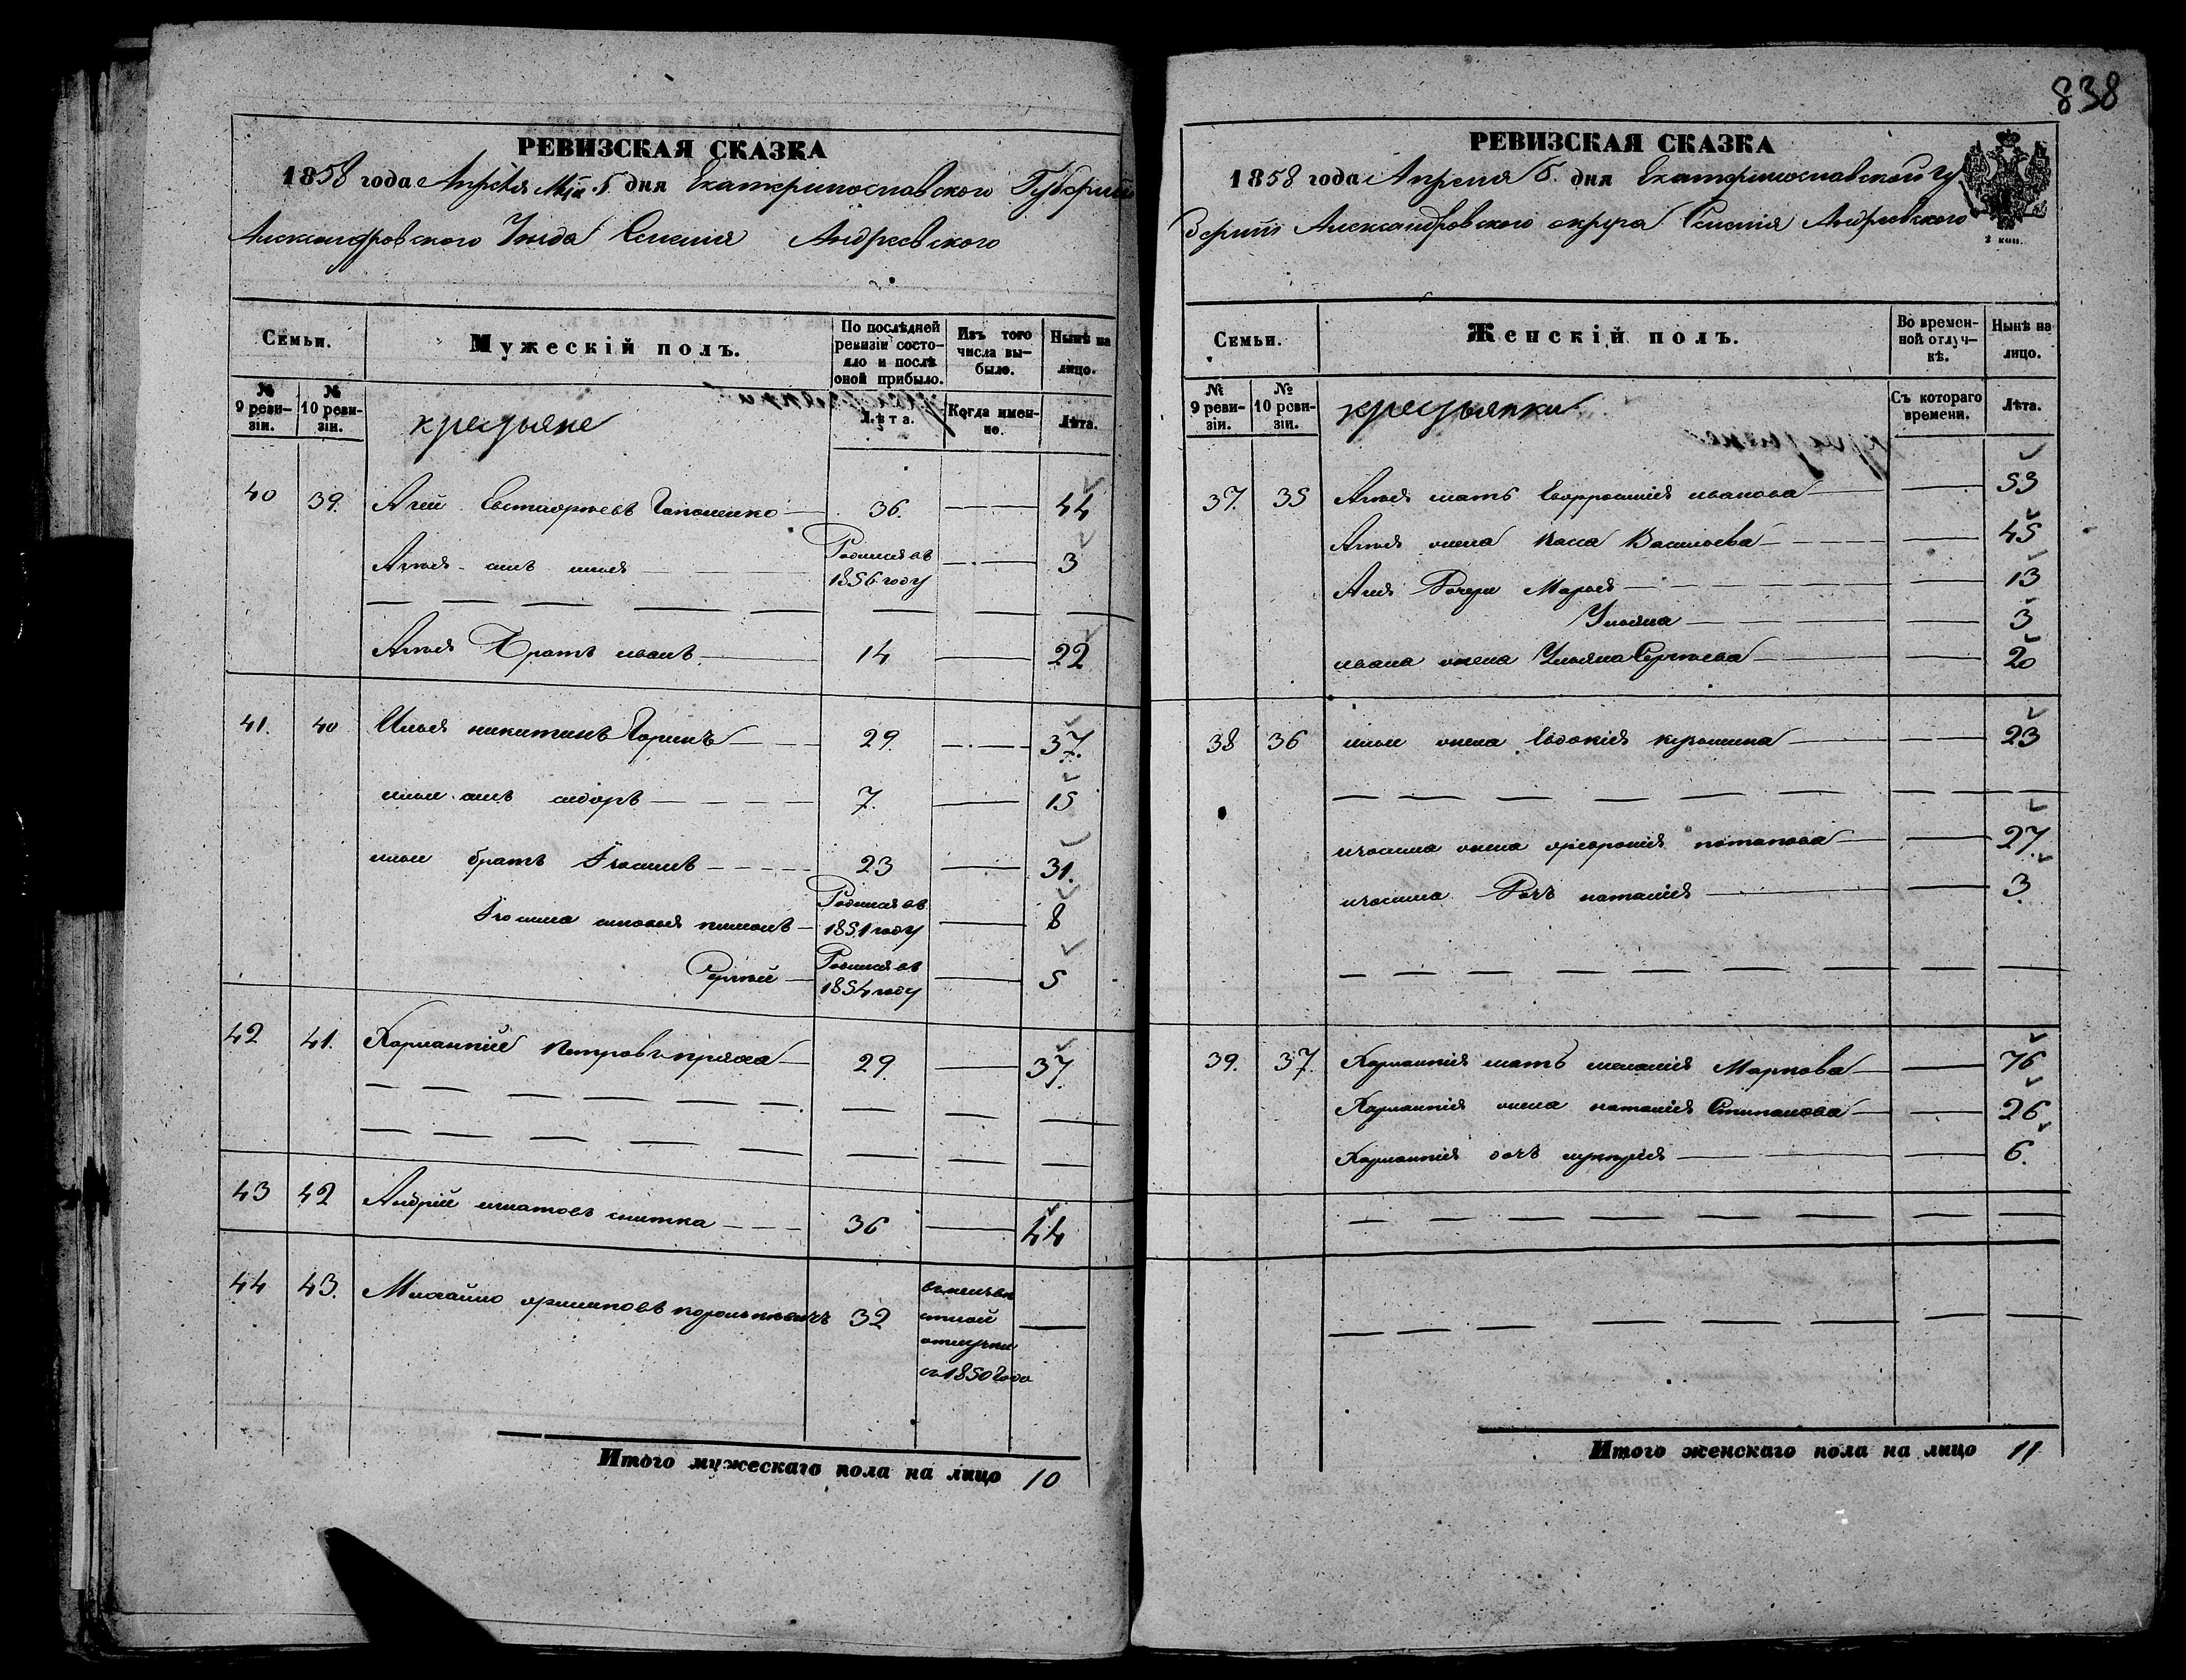 838
РЕВИЗСКАЯ СКАЗКА
1858 года Апреля Мца 6 дня Екатеринославского Губернии
Александровского Уезда Селения Андреевского
Семьи.
Мужескій полъ.
По послѣдней ревизіи состояло и послѣ оной прибыло.
Изъ того числа выбыло.
Нынѣ на лицо.
№ 9 ревизіи.
№ 10 ревизіи.
крестьяне
Лѣта.
Когда именно.
Лѣта.
40 39. Агей Гапоненко 36. 44
Агея сынъ Родился въ 1856 году 3
Агея братъ иванъ 14 22
41. 40 Илья никитинъ Горинъ 29. 37.
ильи сынъ сидоръ 7. 15
ильи братъ 23 31.
сыновья Родился въ 1851 году 8
Сергѣй Родился въ 1854 году 5
42 41. Харлампій Петровъ пряха 29. 37.
43 42 Андрій игнатовъ снитка 36 44
44 43. Михайло 32
отлучки съ 1850 года
Итого мужескаго пола на лицо 10
РЕВИЗСКАЯ СКАЗКА
1858 года Апреля 6. дня Екатеринославской гу
берніи Александровского округа Селенія Андреевского
2 коп.
Семьи.
Женскій полъ.
Во временной отлучкѣ.
Нынѣ на лицо.
№ 9 ревизіи.
№ 10 ревизіи.
крестьянки
Съ котораго времени.
Лѣта.
37. 35 Агея мать иванова 53
Агея жена Васса Васильева 45
Агея дочери Марья 13
Ульяна 3
ивана жена Ульяна Сергѣева 20
38 36 ильи жена Евдокія 23
жена потапова 27.
дочь наталія 3.
39. 37. Харлампія мать меланія Маркова 76
Харлампія жена наталія Степанова 26.
Харлампія дочь лукерія 6.
Итого женскаго пола на лицо 11